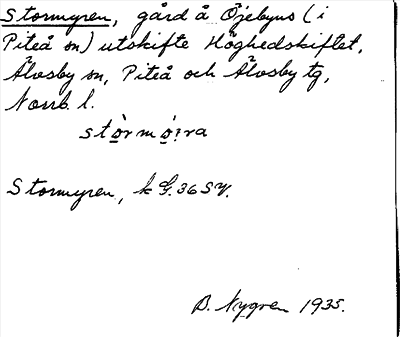 Stormyren, gård å Öjebyns (i
Piteå sn) utskifte Höghedskiftet,
Älvsby sn, Piteå och Älvsby tg,
Norrb. l.
stòrmo̤ra
Stormyren, k G.36SV.
B. Nygren 1935.